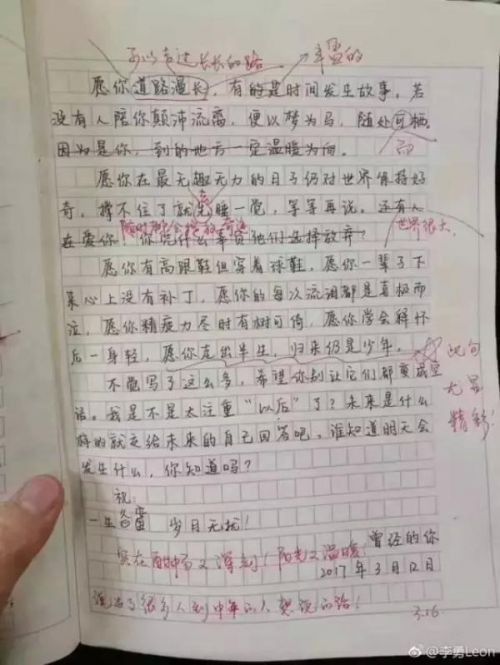 可以有过长长的路 丰盈的
愿你道路漫长，有的是时间发生故事。若
没有人陪你颠沛流离，便以梦为马，随处可栖。
因为是你，到的地方一定温暖为向。
愿你在最无趣无力的日子仍对世界保持好
奇。撑不住了就先睡一觉，等等再说。还有人
世界很大
在爱你！你凭什么辜负他们选择放弃？
愿你有高跟鞋但穿着球鞋，愿你一辈子下
来心上没有补丁，愿你的每次流泪都是喜极而
泣，愿你精疲力尽时有树可倚，愿你学会释怀
后一身轻，愿你走出半生，归来仍是少年。
此句
尤显
精彩
不觉写了这么多，希望你别让它们都变成空
话。我是不是太注重“以后”了？未来是什么
样的就交给未来的自己回答吧，谁知道明天会
发生什么，你知道吗？
祝：
岁月无扰！
实在 又深刻！阳光又温暖 曾经的你
2017年3月12日
很多人到中年的人想说的话！
3.16
@李勇Leon